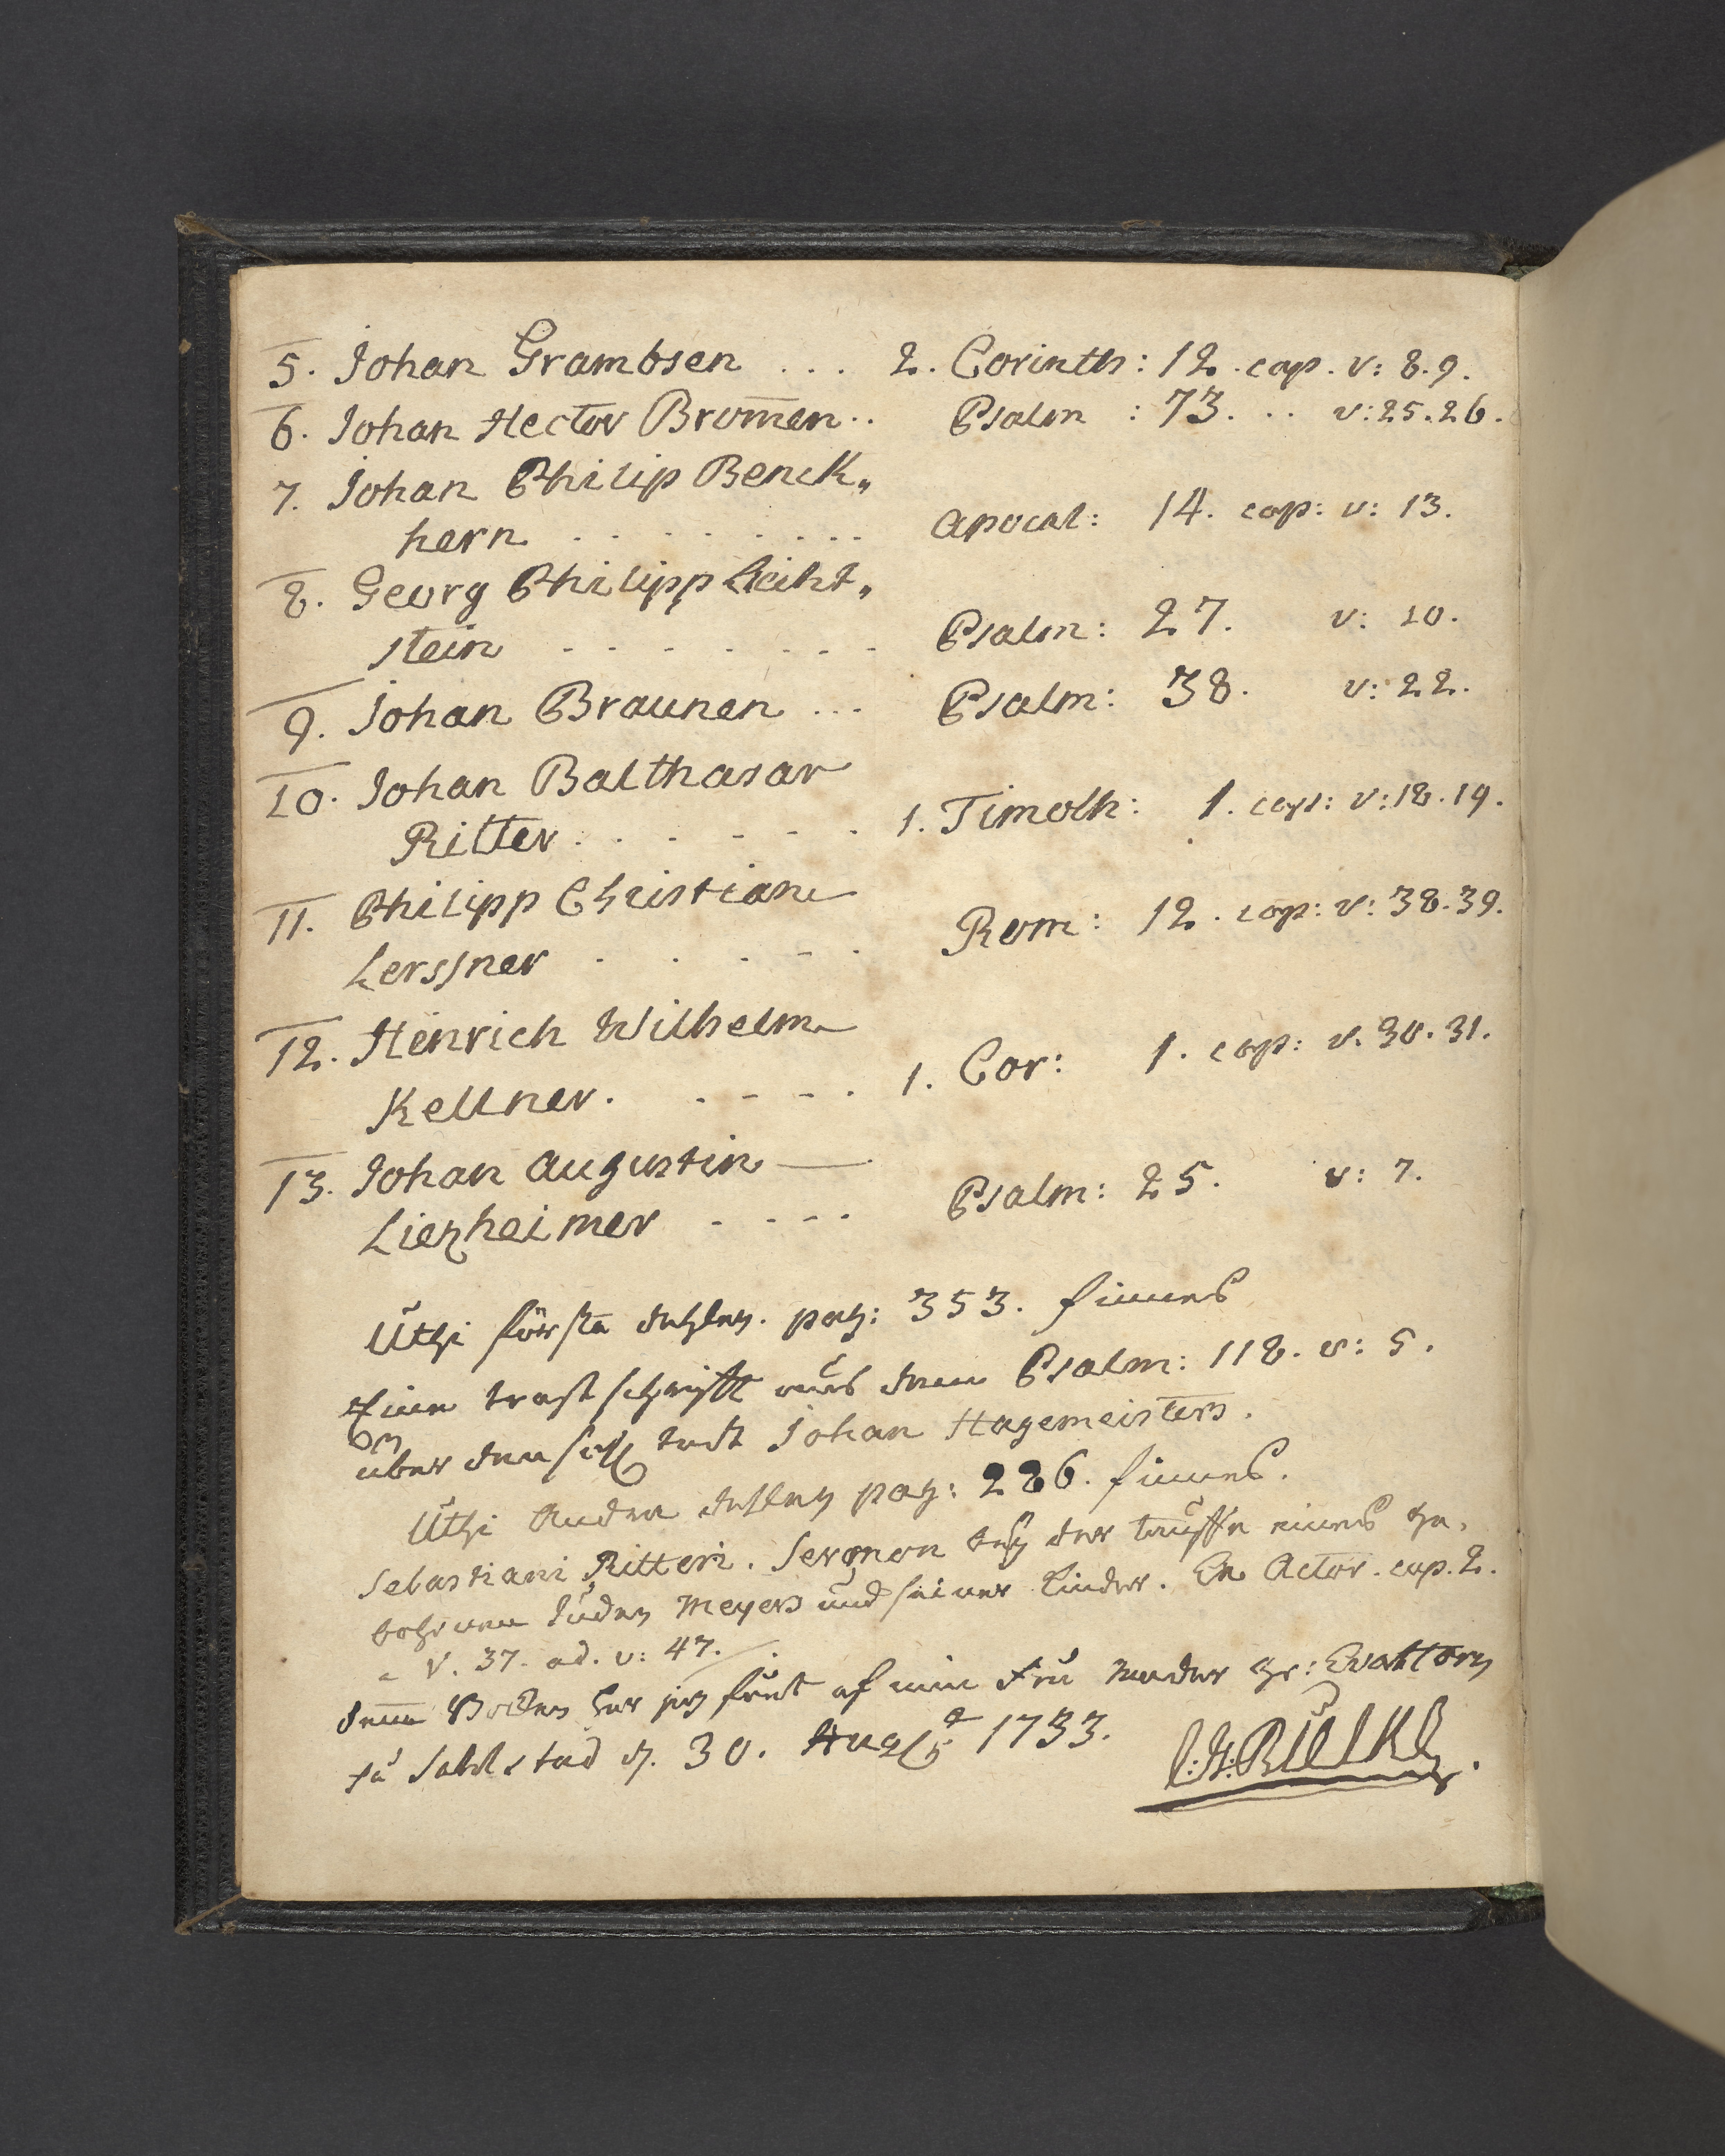 5. Johan Grambsen ... 2. Corinth: 12. cap. v: 8.9.
6. Johan Hector Brom̄en .. Psalm : 73. .. v: 25.26.
7. Johan Philip Benck„
hern ......... Apocal: 14. cap: v: 13.
8. Georg Philipp Leiht„
stein ........ Psalm: 27. v: 10.
9. Johan Braunen ... Psalm: 38. v: 22.
10. Johan Balthasar
Ritter ...... 1. Timoth: 1. cap: v: 18.19.
11. Philipp Christian
Lerssner ..... Rom: 12. cap: v: 38.39.
12. Henrich Wilhelm
Kellner. .... 1. Cor: 1. cap: v. 30.31.
13. Johan Augustin
Liezheimer .... Psalm: 25. v: 7.
Uthi första dehlen. pag: 353. finnes
Eine trostschrifft aus dem Psalm: 118. v: 5.
über den todt Johan Hagemeisters.
Uthi Andra dehlen pag: 286. finnes.
Sebastiani Ritteri. Sermon bey der tauffe eines ge,
bohrnen Juden Meyers und seiner Kinder. Actor. cap. 2.
V. 37. ad. v: 47.
denna Boken har jag fått af min Fru Moder gr:
på Salstad d. 30. Aug 1733. BIELKE.